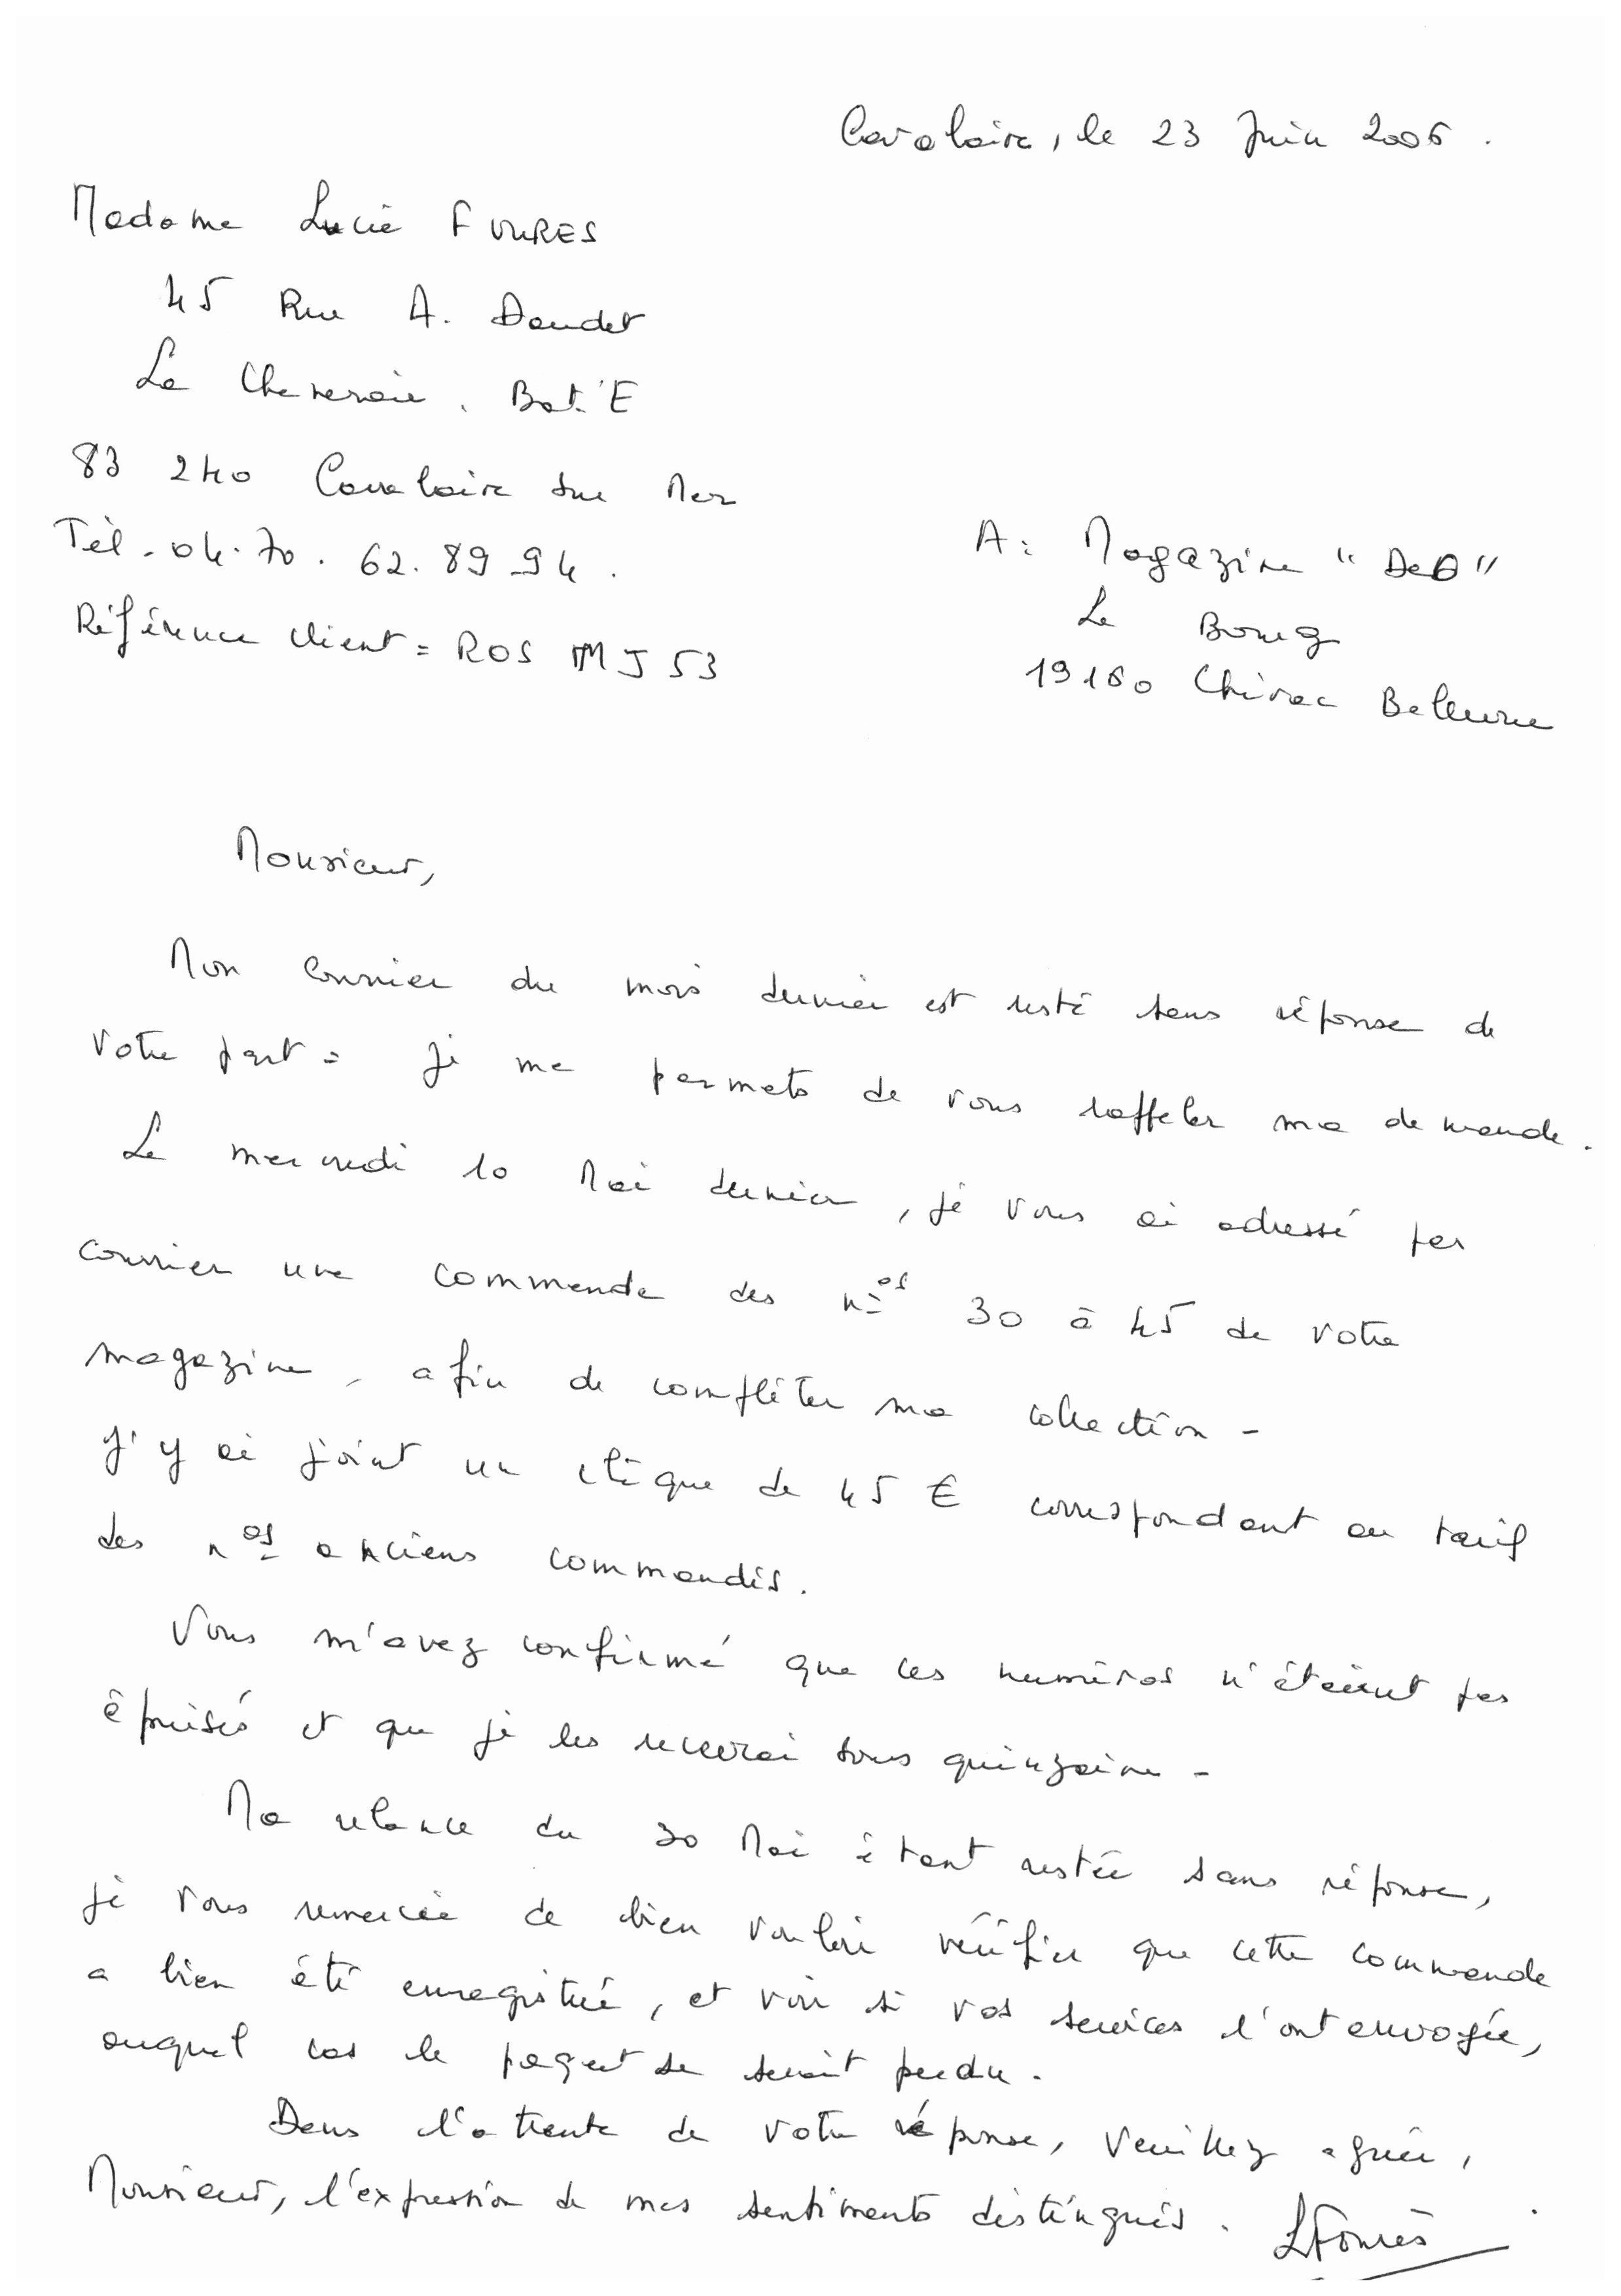 Cavalaire, le 23 Juin 2006.
Madame Lucie FOURES
45 Rue A. Daudet
La Cheneraie. Bat. E
83 240 Cavalaire sur Mer
Tèl. 04. 70. 62. 89 94.
Référence client = ROS MJ 53
A: Magazine "DeD"
Le Bourg
19160 Chirac Bellevue
Monsieur,
Mon courrier du mois dernier est resté sans réponse de
votre part = je me permets de vous rappeler ma demande.
Le mercredi 10 Mai dernier, je vous ai adressé par
courrier une commande des nos 30 à 45 de votre
magazine, afin de compléter ma collection -
J'y ai joint un chèque de 45 € correspondant au tarif
des nos anciens commandés.
Vous m'avez confirmé que ces numéros n'étaient pas
épuisés et que je les recevrai sous quinzaine -
Ma relance du 30 Mai étant restée sans réponse,
je vous remercie de bien vouloir vérifier que cette commande
a bien été enregistrée, et voir si vos services l'ont envoyée,
auquel cas le paquet se serait perdu.
Dans l'attente de votre réponse, veuillez agréer,
Monsieur, l'expression de mes sentiments distingués. LFourès